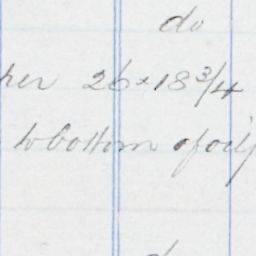 do
her 26 x 18 3/4
to bottom of oil